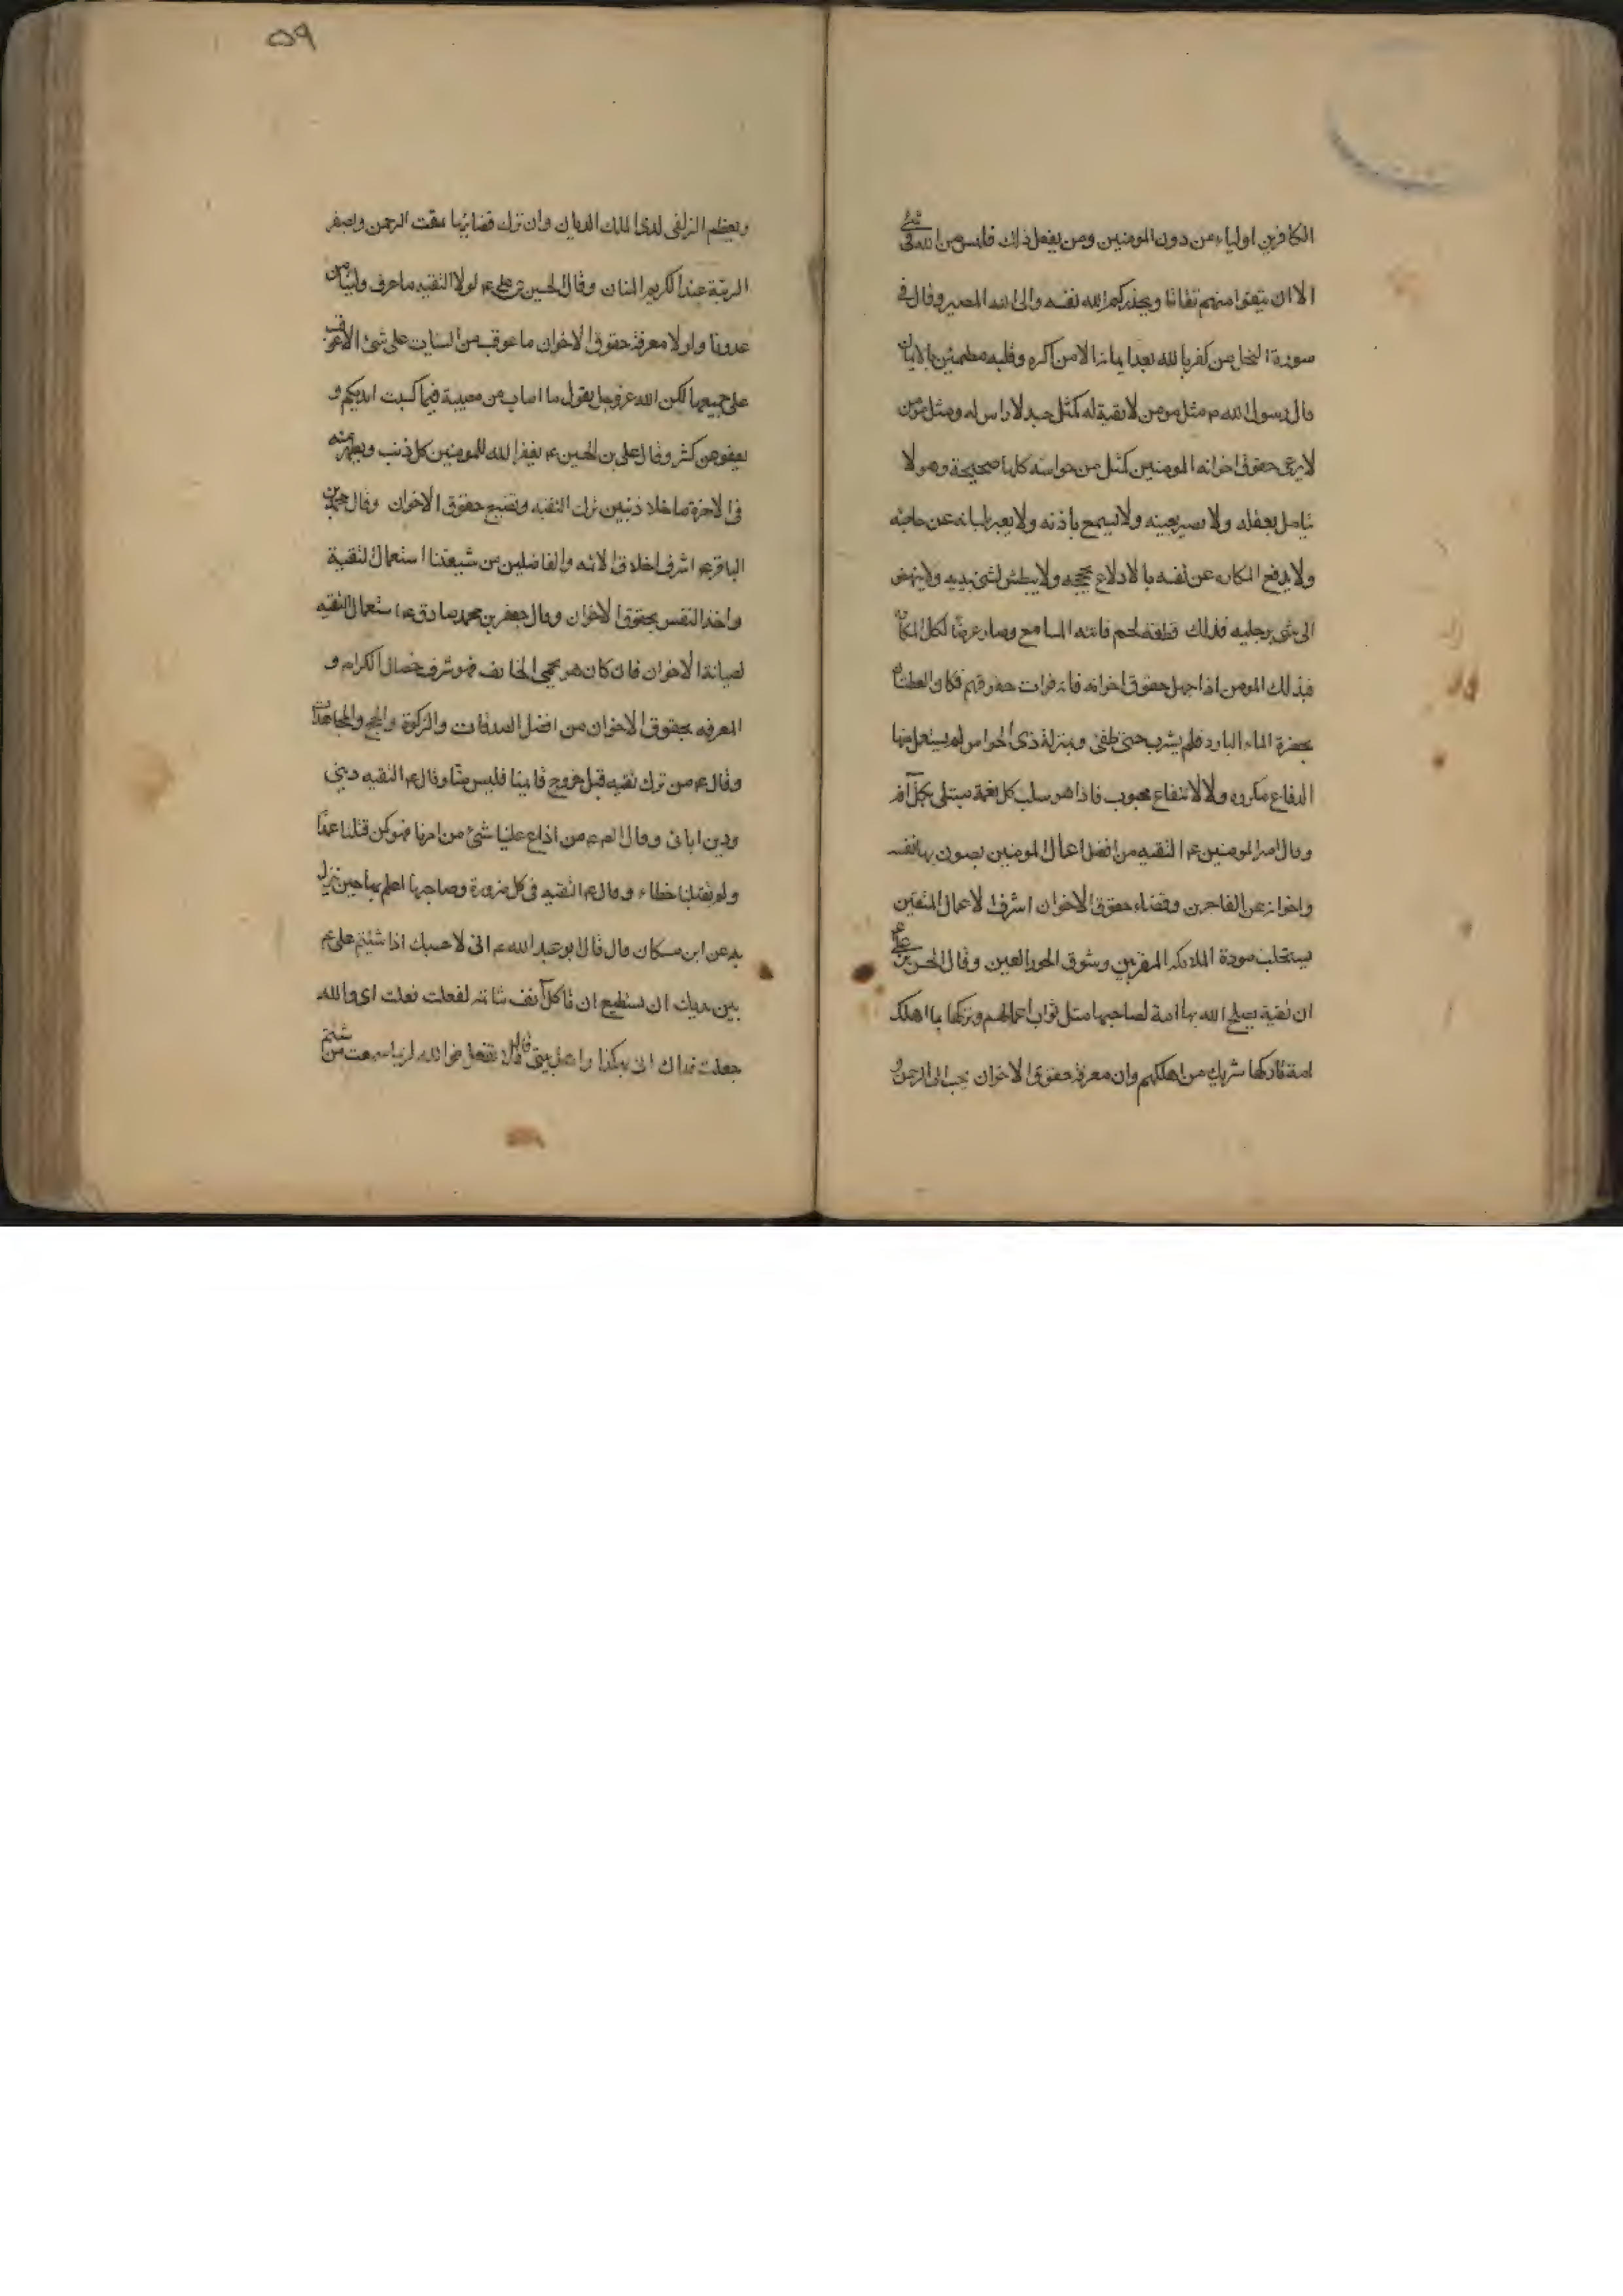 الكافرين اولياء من دون المومنين ومن يفعل ذلك فليس من الله فى شئ
الا ان تتقوا منهم تقاتا ويحذركم الله نفسه والى الله المصير وقال فى
سورة النحل من كفر بالله بعد ايمانه الا من اكره وقلبه مطمئن بالايمان
قال رسول الله ص مثل مومن لا تقية له كمثل جسد لا راس له ومثل مومن
لا يرعى حقوق اخوانه المومنين كمثل من حواسه كلها صحيحة وهو لا
يتامل بعقله ولا يبصر بعينه ولا يسمع باذنه ولا يعبر بلسانه عن حاجته
ولا يدفع المكاره عن نفسه بالادلاء بحججه ولا يبطش لشئ بيديه ولا ينهض
الى شئ برجليه فذلك قطعة لحم فاتته المنافع وصار عرضا لكل المكاره
فذلك المومن اذا جهل حقوق اخوانه فانه فوات حقوقهم فكان العطشان
بحضرة الماء البارد فلم يشرب حتى طفى وبمنزلة ذى الحواس لم يستعمل منها
الدفاع مكروه ولا لانتفاع محبوب فاذا هو سلب كل نعمة مبتلى بكل آفة
وقال امير المومنين ع التقيه من افضل اعمال المومنين يصون بها نفسه
واخوانه عن الفاجرين وقضاء حقوق الاخوان اشرف الاعمال المتقين
يستجلب مودة الملائكه المقربين وشوق الحور العين وقال الحسن بن على ع
ان تقية يصلح الله بها امة لصاحبها مثل ثواب اعمالهم وتركها بما اهلك
امة تاركها شريك من اهلكهم وان معرفة حقوق الاخوان يحب الى الرحمن و
۵۹
ويعظم الزلفى لدى الملك الديان وان ترك قضائها مقت الرحمن ويصغر
الرتبة عند الكريم المنان وقال الحسين بن على ع لولا التقيه ما عرف ولينا من
عدونا ولولا معرفة حقوق الاخوان ما عوقب من السيات على شئ الا عوقب
على جميعها لكن الله عز وجل يقول ما اصاب من مصيبة فيما كسبت ايديكم و
يعفو عن كثير وقال على بن الحسين ع يغفر الله للمومنين كل ذنب ويطهر منه
فى الاخرة ما خلا ذنبين ترك التقيه وتضيع حقوق الاخوان وقال محمد بن
الباقر ع اشرف اخلاق الائمه والفاضلين من شيعتنا استعمال التقية
واخذ النفس بحقوق الاخوان وقال جعفر بن محمد صادق ع استعمال التقيه
لصيانة الاخوان فان كان هو يحمى الخائف فهو شرف خصال الكرام و
المعرفه بحقوق الاخوان من افضل الصدقات والزكوة والحج والمجاهدات
وقال ع من ترك تقيه قبل خروج قايمنا فليس منا وقال ع التقيه دينى
ودين ابائى وقال ع من اذاع علينا شئ من امرنا فهو كمن قتلنا عمدا
ولم يقتلنا خطاء وقال ع التقيه فى كل ضرورة وصاحبها اعلم بها حين تنزل
به عن ابن مسكان قال قال ابو عبد الله ع انى لاحسبك اذا شتم على ع
بين يديك ان تستطيع ان تاكل انف شاتمه لفعلت فعلت اى والله
جعلت فداك انى هكذا واهل بيتى قال لا تفعل فو الله لربما سمعت من شتم